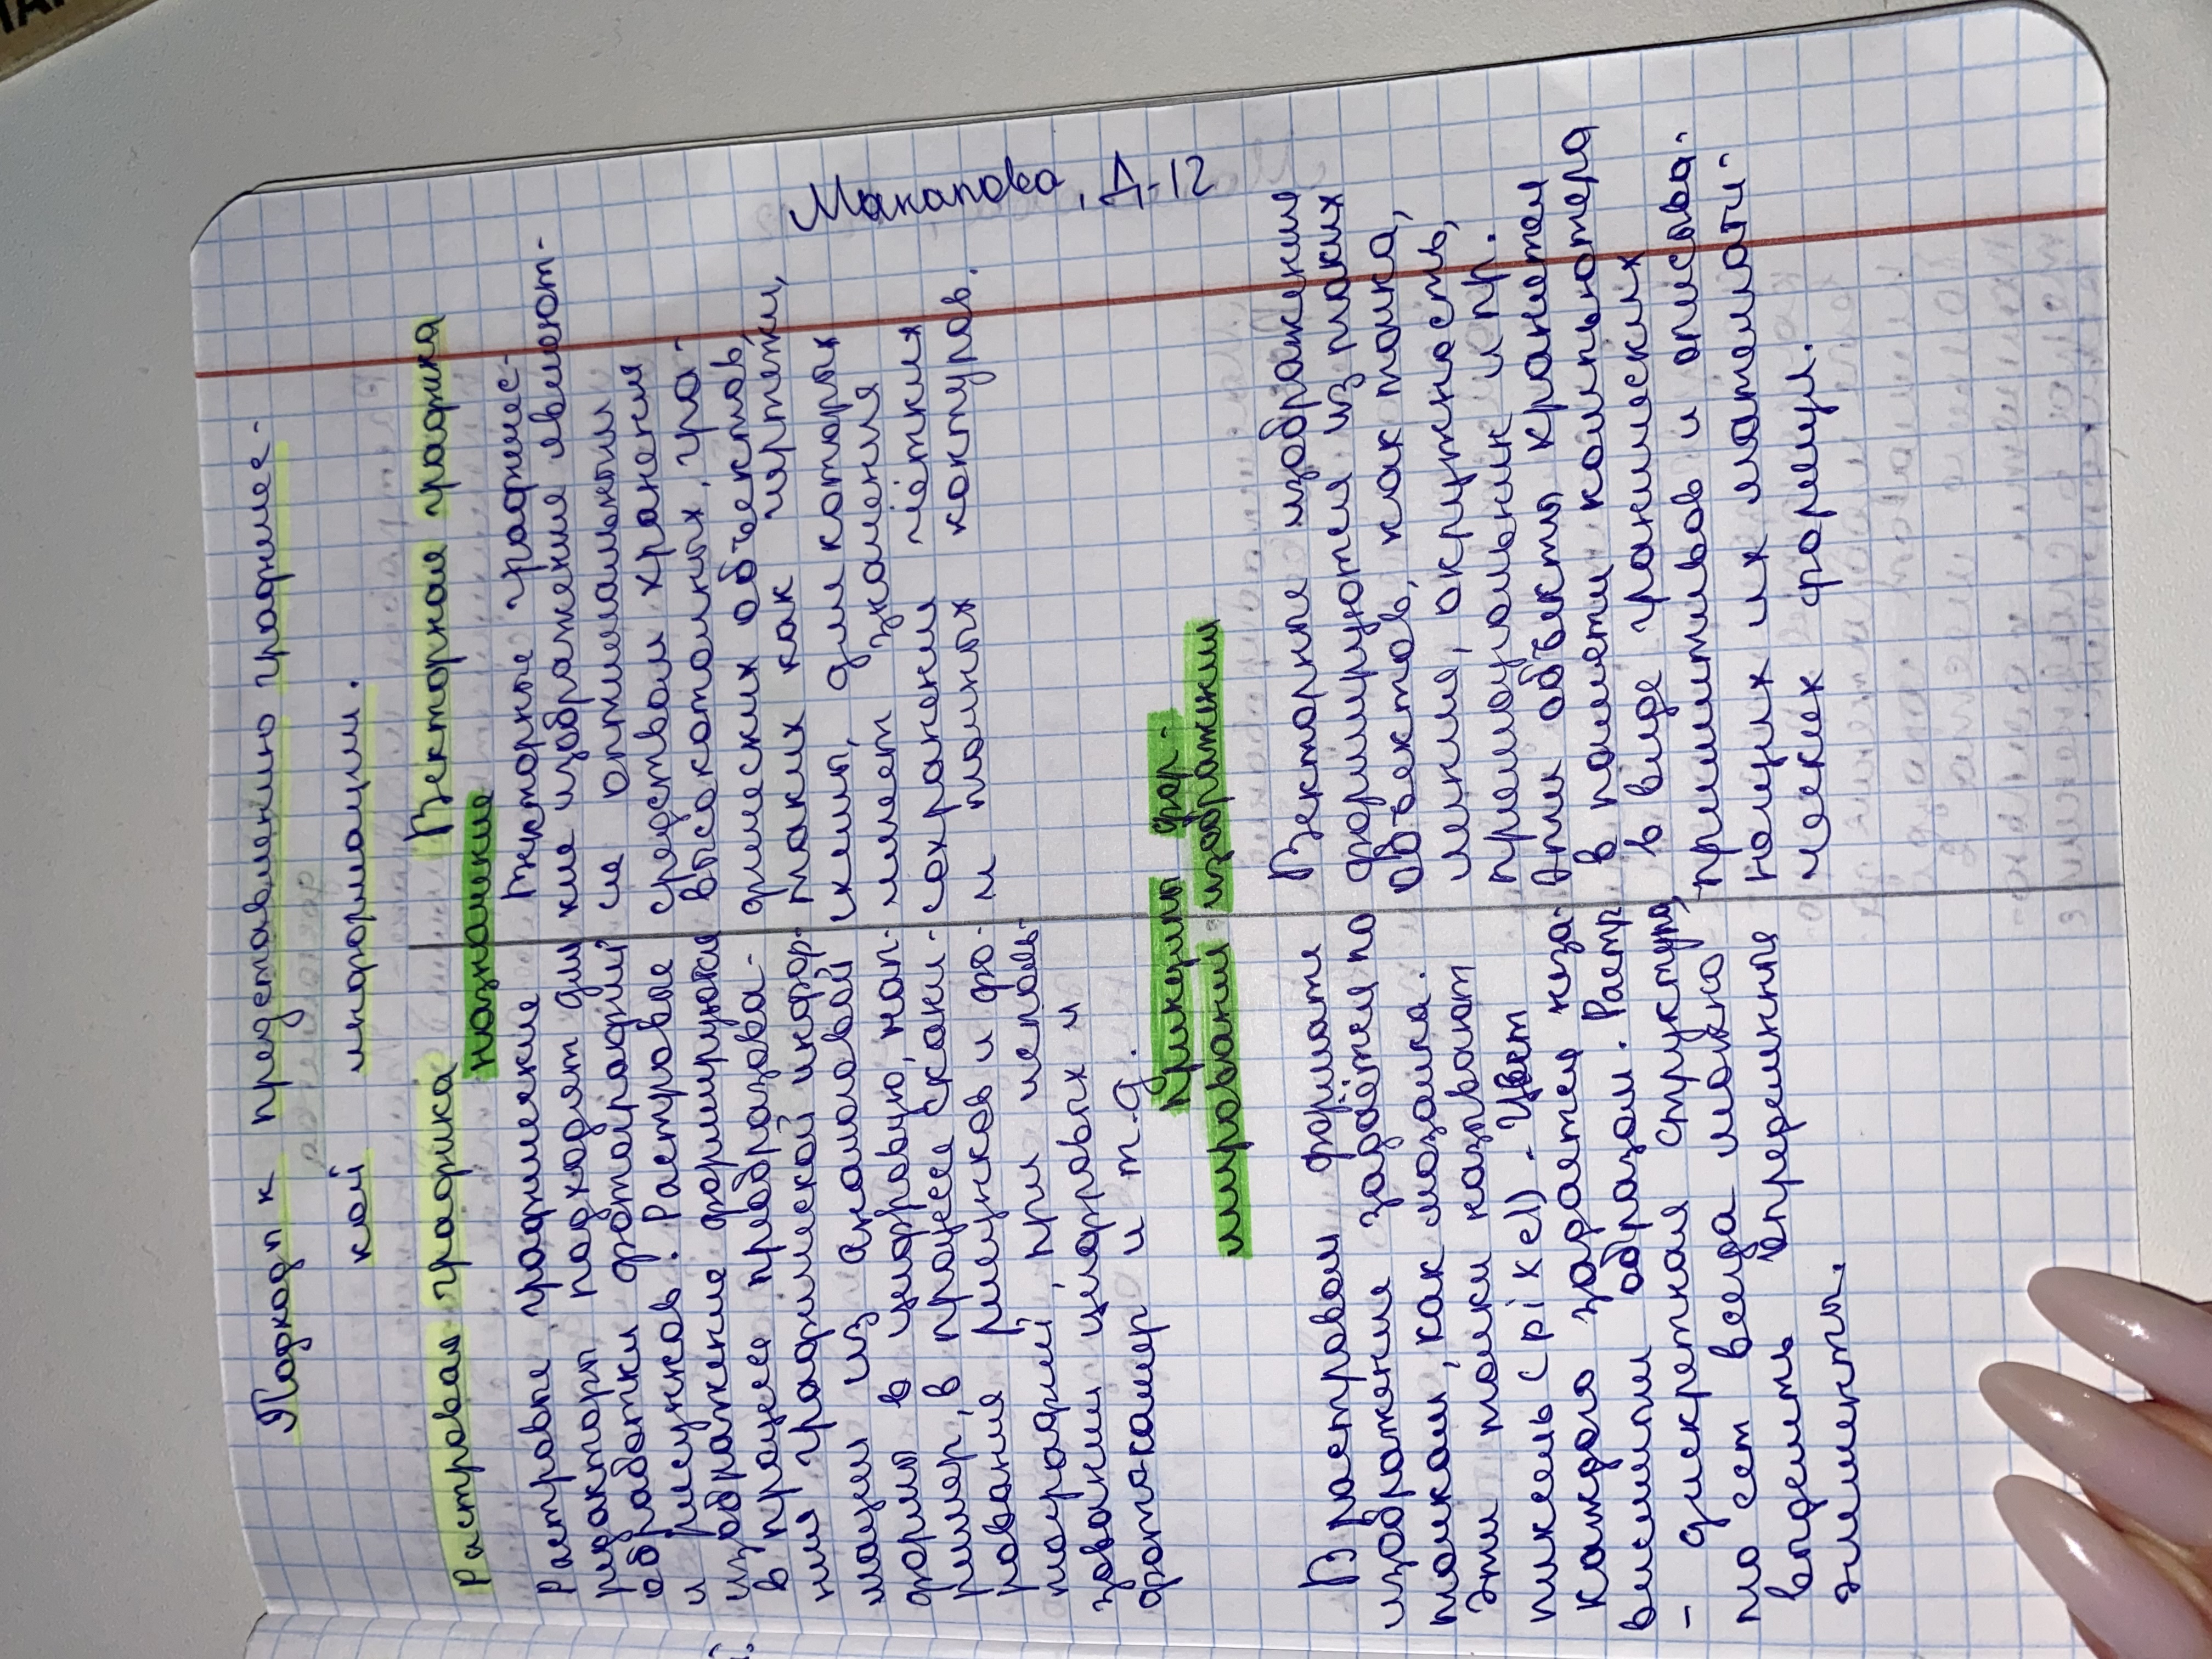 Макапова, Д-12
Подход к представлению графичес-
кой информации.
Растровая графика
Векторная графика
назначение
Растровые графические
редакторы подходят для
обработки фотографий
и рисунков. Растровое
изображение формируются
в процессе преобразова-
ния графической инфор-
мации из аналоговой
формы в цифровую, нап-
ример, в процессе скани-
рования рисунков и фо-
тографий, при исполь-
зовании цифровых и
фотокамер и т.д.
Векторные графичес-
кие изображения являют-
ся оптимальным
средством хранения
высокоточных, гра-
фических объектов,
таких как чертежи,
схемы, для которых
имеет значения
сохранения чётких
и полных контуров.
Принципы фор-
мирования изображения
В растровом формате
изображения задаётся по
точкам, как мозаика.
Эти точки называют
пиксель (pixel). Цвет
каждого задается неза-
висимым образом. Растр
- дискретная структура,
то есть всегда можно
выделить определённые
элементы.
Векторные изображения
формируются из таких
объектов, как точка,
линия, окружность,
прямоугольник и пр.
Эти объекты хранятся
в памяти компьютера
в виде графических
примитивов и описыва-
ющих их математи-
ческих формул.